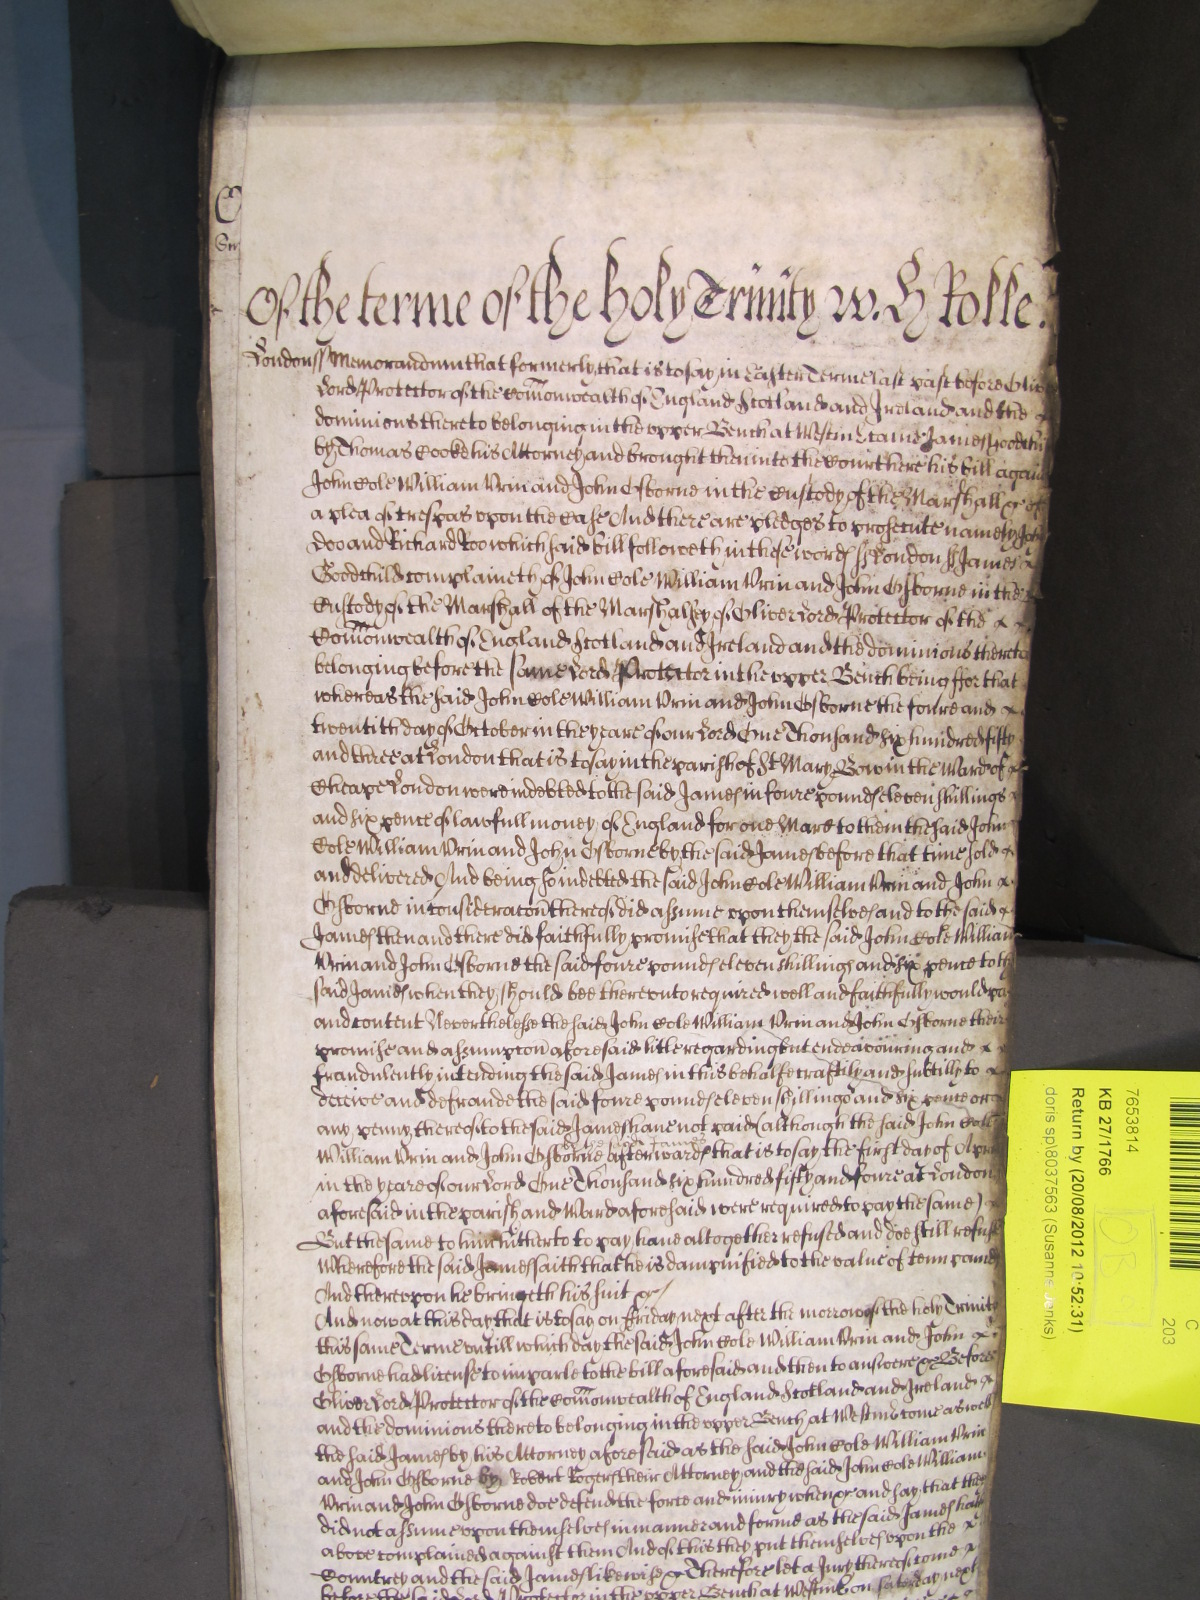 Of the terme of the holy Trinity w. H Rolle.
London ss Memorandum that formerly that is to say in Easter Terme last past before Oliver
Lord Protector of the Comonwealth of England Scotland and Ireland and the
dominions thereto belonging in the upper Bench at Westm came James Goodchild
by Thomas Cooke his Attorney and brought then into the Court there his bill against
John Cole William Vrin and John Osborne in the Custody of the Marshall &c of
a plea of trespas upon the Case And there are pledges to prosecute namely John
Doo and Richard Roo which said bill followeth in these words ss London ss James
Goodchild complaineth of John Cole William Vrin and John Osborne in the
Custody of the Marshall of the Marshalsey of Oliver Lord Protector of the
Comonwealth of England Scotland and Ireland and the dominions thereto
belonging before the same Lord Protector in the upper Bench being ffor that
whereas the said John Cole William Vrin and John Osborne the foure and
twentith day of October in the yeare of our Lord One Thousand six hundred fifty
and three at London that is to say in the parish of St Mary Bow in the Ward of
Cheape London were indebted to the said James in foure pounds eleven shillings
and six pence of lawfull money of England for one Mare to them the said John
Cole William Vrin and John Osborne by the said James before that time sold
and delivered And being so indebted the said John Cole William Vrin and John
Osborne in consideracon thereof did assume upon themselves and to the said
James then and there did faithfully promise that they the said John Cole William
Vrin and John Osborne the said foure pounds eleven shillings and six pence to the
said James when they should bee thereunto required well and faithfully would pay
and content Neverthelesse the said John Cole William Vrin and John Osborne their
promise and assumpcon aforesaid litle regarding but endeavouring and
fraudulently intending the said James in this behalfe craftily and subtilly to
deceive and defraude the said foure pounds eleven shillings and six pence or
any penny thereof to the said James have not paid (although the said John Cole
by the said James
William Vrin and John Osborne afterwards that is to say the first day of Aprill
in the yeare of our Lord One Thousand six hundred fifty and foure at London
aforesaid in the parish and Ward aforesaid were required to pay the same)
But the same to him hitherto to pay have altogether refused and doe still refuse
Wherefore the said James saith that he is dampnified to the value of tenn pounds
And thereupon he bringeth his suit &c
And now at this day that is to say on ffriday next after the morrow of the holy Trinity
this same Terme untill which day the said John Cole William Vrin and John
Osborne had license to imparle to the bill aforesaid and then to answere &c Before
Oliver Lord Protector of the Comonwealth of England Scotland and Ireland
and the dominions thereto belonging in the upper Bench at Westm come as well
the said James by his Attorney aforesaid as the said John Cole William Vrin
and John Osborne by Robert Rogers their Attorney and the said John Cole William
Vrin and John Osborne doe defend the force and injury when &c and say that they
did not assume upon themselves in manner and forme as the said James hath
above complained against them And of this they put themselves upon the
Countrey and the said James likewise &c Therefore let a Jury thereof come
before the said Lord Protector in the upper Bench at Westm on saturday next
7653814
KB 27/1766
Return by (20/08/2012 10:52:31)
doris sp8037563 (Susanne Jenks)
C
203